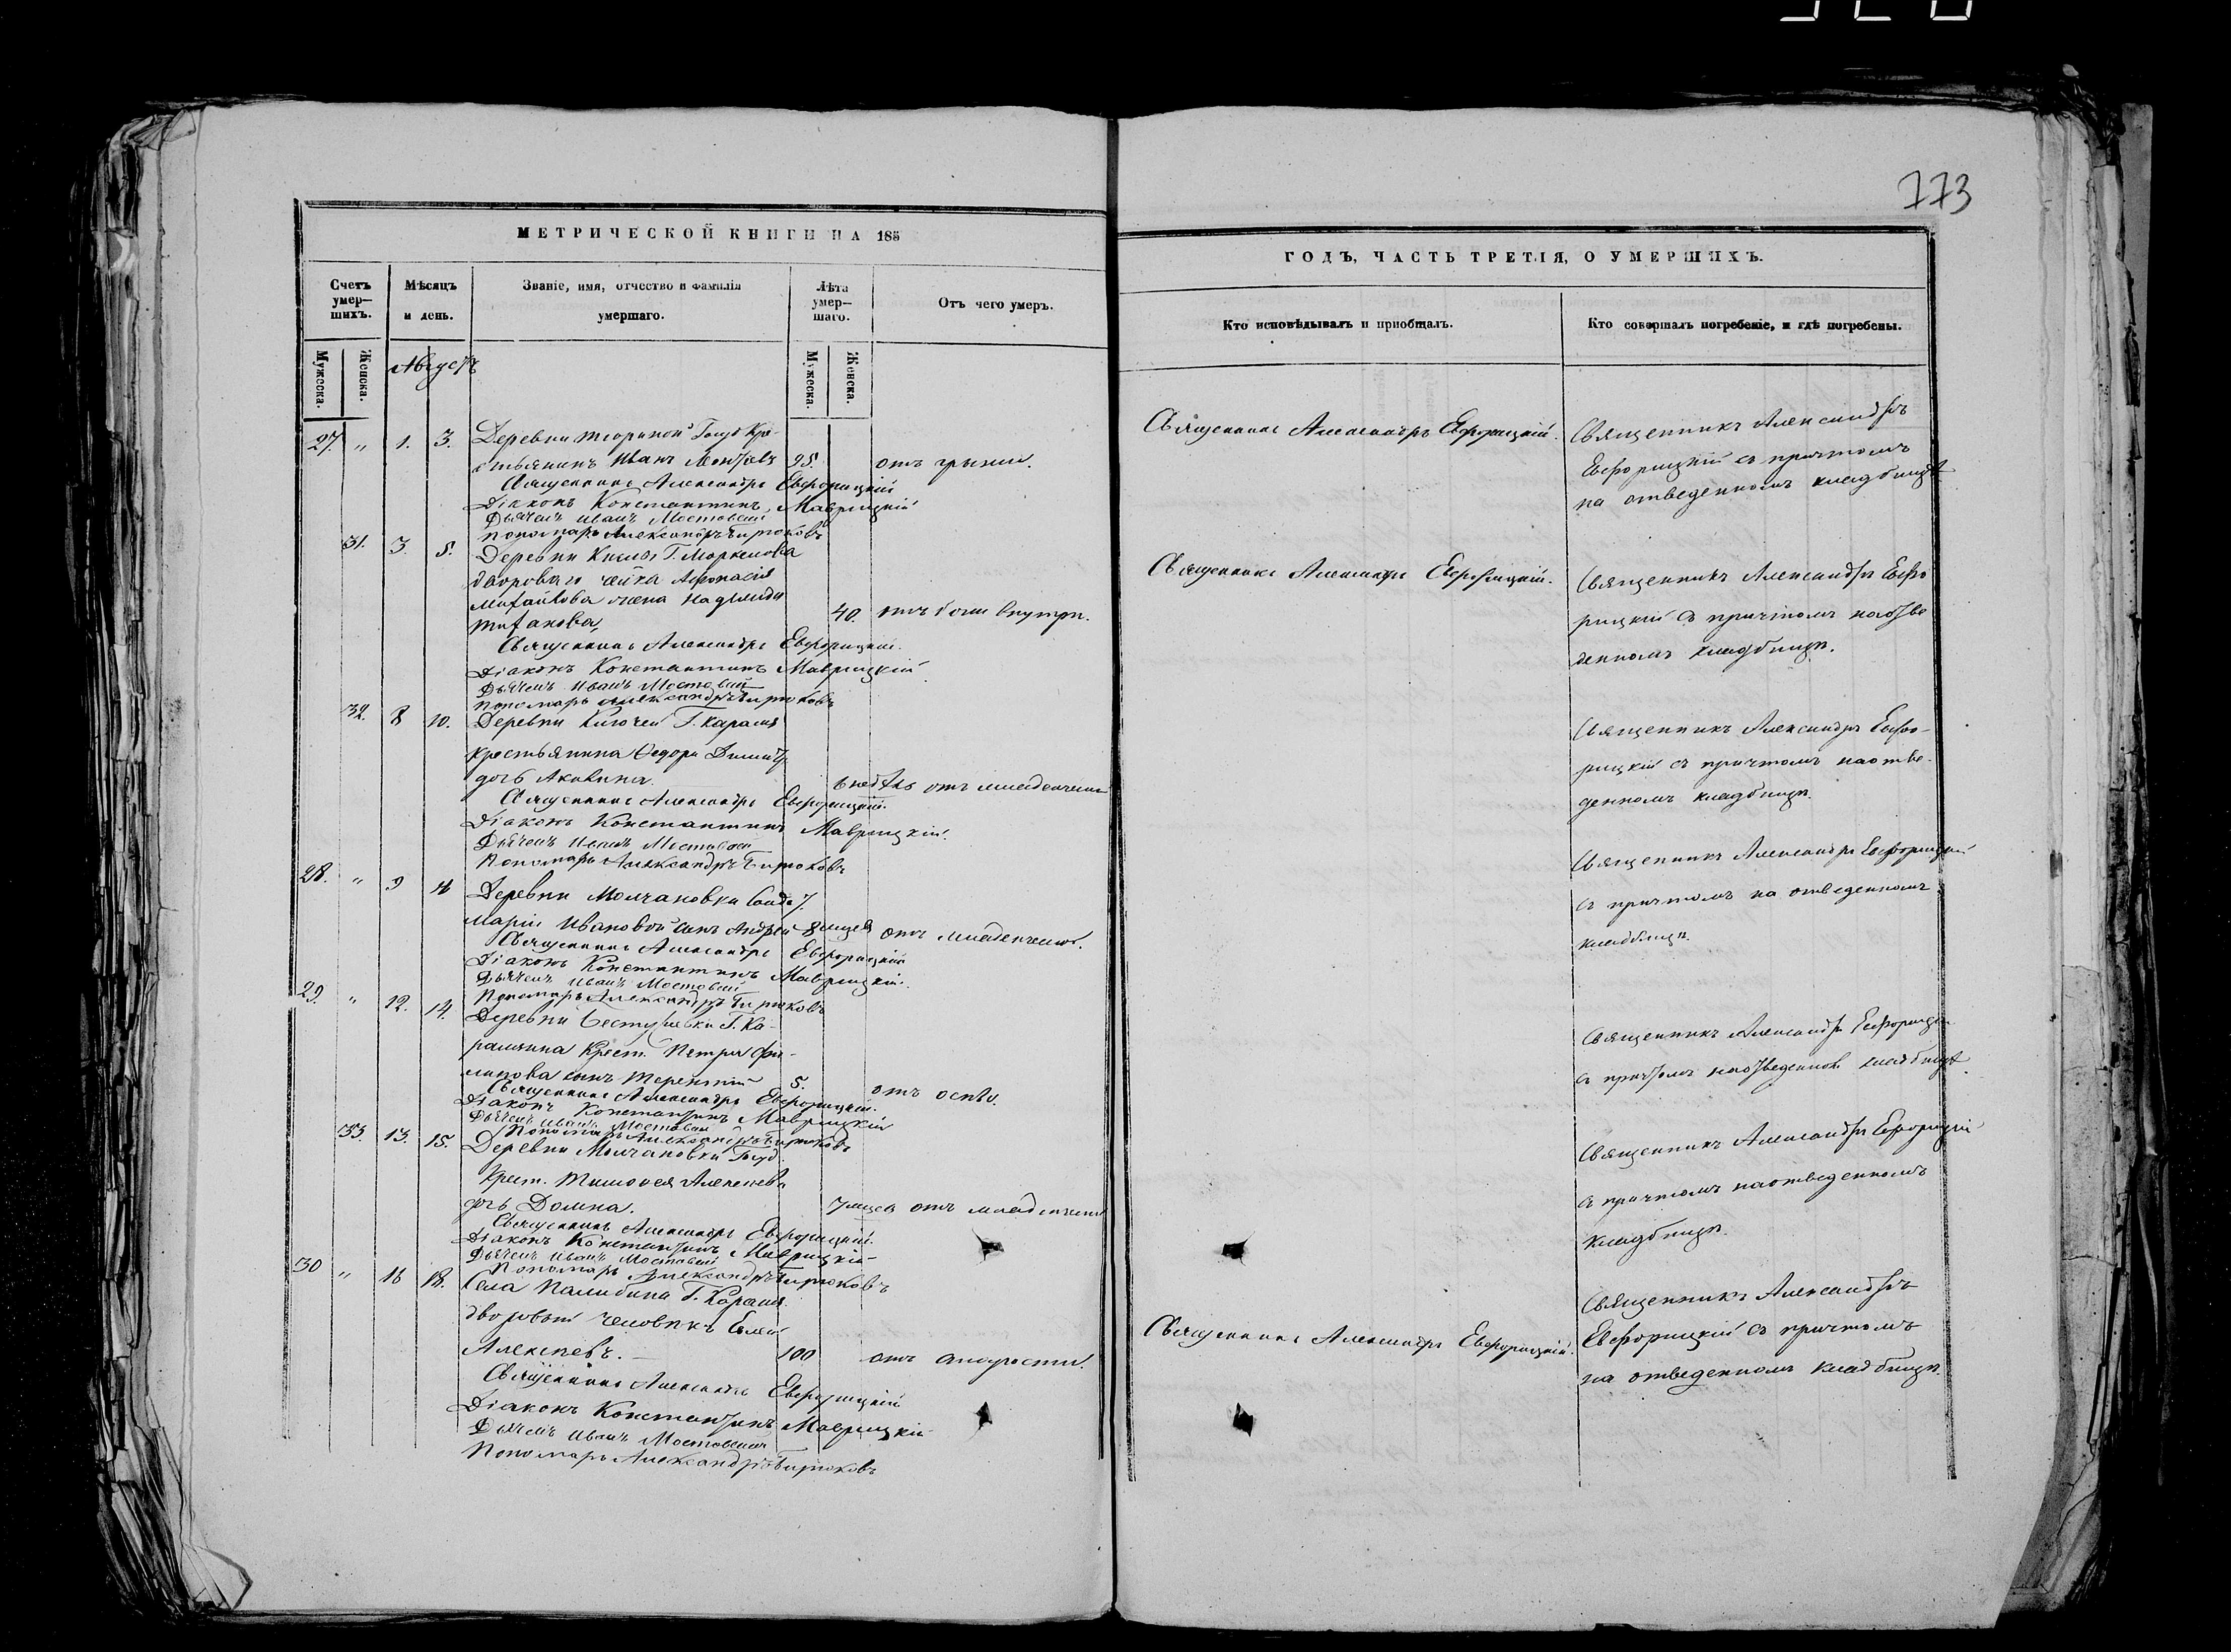 773
МЕТРИЧЕСКОЙ КНИГИ НА 185
Счетъ умер-шихъ.
Мѣсяцъ и день.
Званіе, имя, отчество и фамилія умершаго.
Лѣта умер-шаго.
Отъ чего умеръ.
Мужеска.
Женска.
Августъ
Мужеска.
Женска.
27. " 1. 3. Деревни Госуд Кре-
стьянинъ Иванъ 95. отъ грыжи.
Священникъ Александръ Евфорицкій
Діаконъ Константинъ Маврицкій
Дьячекъ Иванъ Мостовскій
Пономарь Александръ Бирюковъ
31. 3. 5. Деревни Г.
двороваго Афонасія
Михайлова жена
40. отъ боли внутри.
Священникъ Александръ Евфорицкій.
Діаконъ Константинъ Маврицкій
Дьячекъ Иванъ Мостовскій
Пономарь Александръ Бирюковъ
32. 8 10. Деревни Ключей Г. Карамз
крестьянина Ѳедора Димит
дочь Акилина. 6 недѣль отъ младенческ
Священникъ Александръ Евфорицкій.
Діаконъ Константинъ Маврицкій.
Дьячекъ Иванъ Мостовскій
Пономарь Александръ Бирюковъ
28. " 9 11 Деревни Молчановки Солдат
Маріи Ивановой сынъ Андрей 8 мцев отъ младенческой.
Священникъ Александръ Евфорицкій
Діаконъ Константинъ Маврицкій.
Дьячекъ Иванъ Мостовскій
Пономарь Александръ Бирюковъ
29. " 12. 14. Деревни Бестужевки Г. Ка-
рамзина Крест. Петра Фи-
липова сынъ Терентій 5. отъ оспы.
Священникъ Александръ Евфорицкій.
Діаконъ Константинъ Маврицкій
Дьячекъ Иванъ Мостовскій
Пономарь Александръ Бирюковъ
33. 13. 15. Деревни Молчановки Госуд.
Крест. Тимофея Алексѣева
дочь Домна. 7 мцев отъ младенческ
Священникъ Александръ Евфорицкій.
Діаконъ Константинъ Маврицкій
Дьячекъ Иванъ Мостовскій
Пономарь Александръ Бирюковъ
30 " 16 18. Села Палибина Г. Карамз.
дворовый человѣкъ
Алексѣевъ. 100 отъ старости.
Священникъ Александръ Евфорицкій
Діаконъ Константинъ Маврицкій
Дьячекъ Иванъ Мостовскій
Пономарь Александръ Бирюковъ
ГОДЪ, ЧАСТЬ ТРЕТІЯ, О УМЕРШИХЪ.
Кто исповѣдывалъ и пріобщалъ.
Кто совершалъ погребеніе, и гдѣ погребены.
Священникъ Александръ Евфорицкій.
Священникъ Александръ
Евфорицкій съ причтомъ
на отведенномъ кладбищѣ
Священникъ Александръ Евфорицкій.
Священникъ Александръ Евфо
рицкій съ причтомъ на отве
денномъ кладбищѣ.
Священникъ Александръ Евфо-
рицкій съ причтомъ на отве-
денномъ кладбищѣ.
Священникъ Александръ Евфорицкій
съ причтомъ на отведенномъ
кладбищѣ.
Священникъ Александръ Евфорицкій
съ причтомъ на отведенном кладбищѣ.
Священникъ Александръ Евфорицкій
съ причтомъ на отведенномъ
кладбищѣ.
Священникъ Александръ Евфорицкій.
Священникъ Александръ
Евфорицкій съ причтомъ
на отведенномъ кладбищѣ.